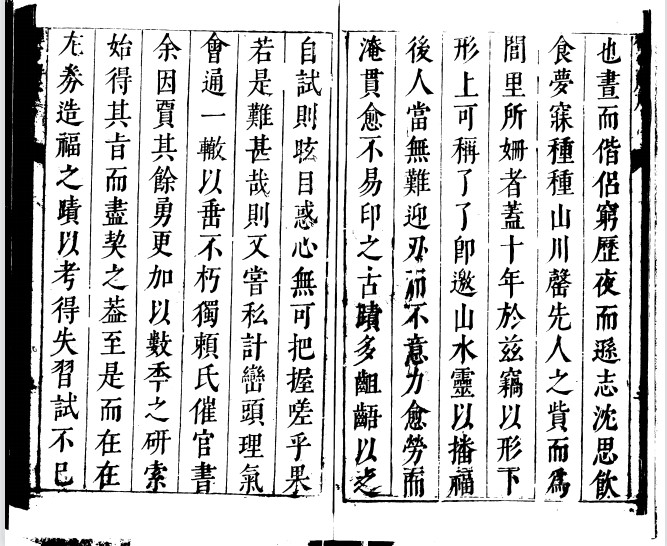 也晝而偕侶窮歷夜而遜志沈思飲
食夢寐種種山川罄先人之貲而為
閭里所姍者蓋十年於茲竊以形下
形上可稱了了卽邀山水靈以播福
後人當無難迎刃而不意力愈勞而
淹貫愈不易印之古蹟多齟齬以之
自試則眩目惑心無可把握嗟乎果
若是難甚哉則又嘗私計巒頭理氣
會通一轍以垂不朽獨賴氏催官書
余因賈其餘勇更加以數季之研索
始得其旨而盡契之葢至是而在在
左券造福之蹟以考得失習試不已